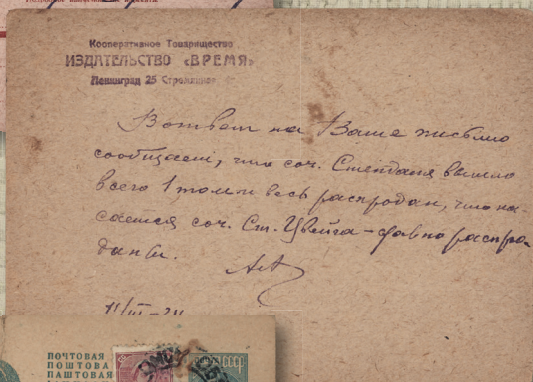 Кооперативное Товарищество
ИЗДАТЕЛЬСТВО «ВРЕМЯ»
Ленинград 25 Стремянная
В ответ на Ваше письмо
сообщаем, что соч. Стендаля вышло
всего 1 том и весь распродан, что ка-
сается соч. Ст. Цвейга – давно распро-
даны.
11/III-
ПОЧТОВАЯ
ПОШТОВА
ПАШТОВАЯ